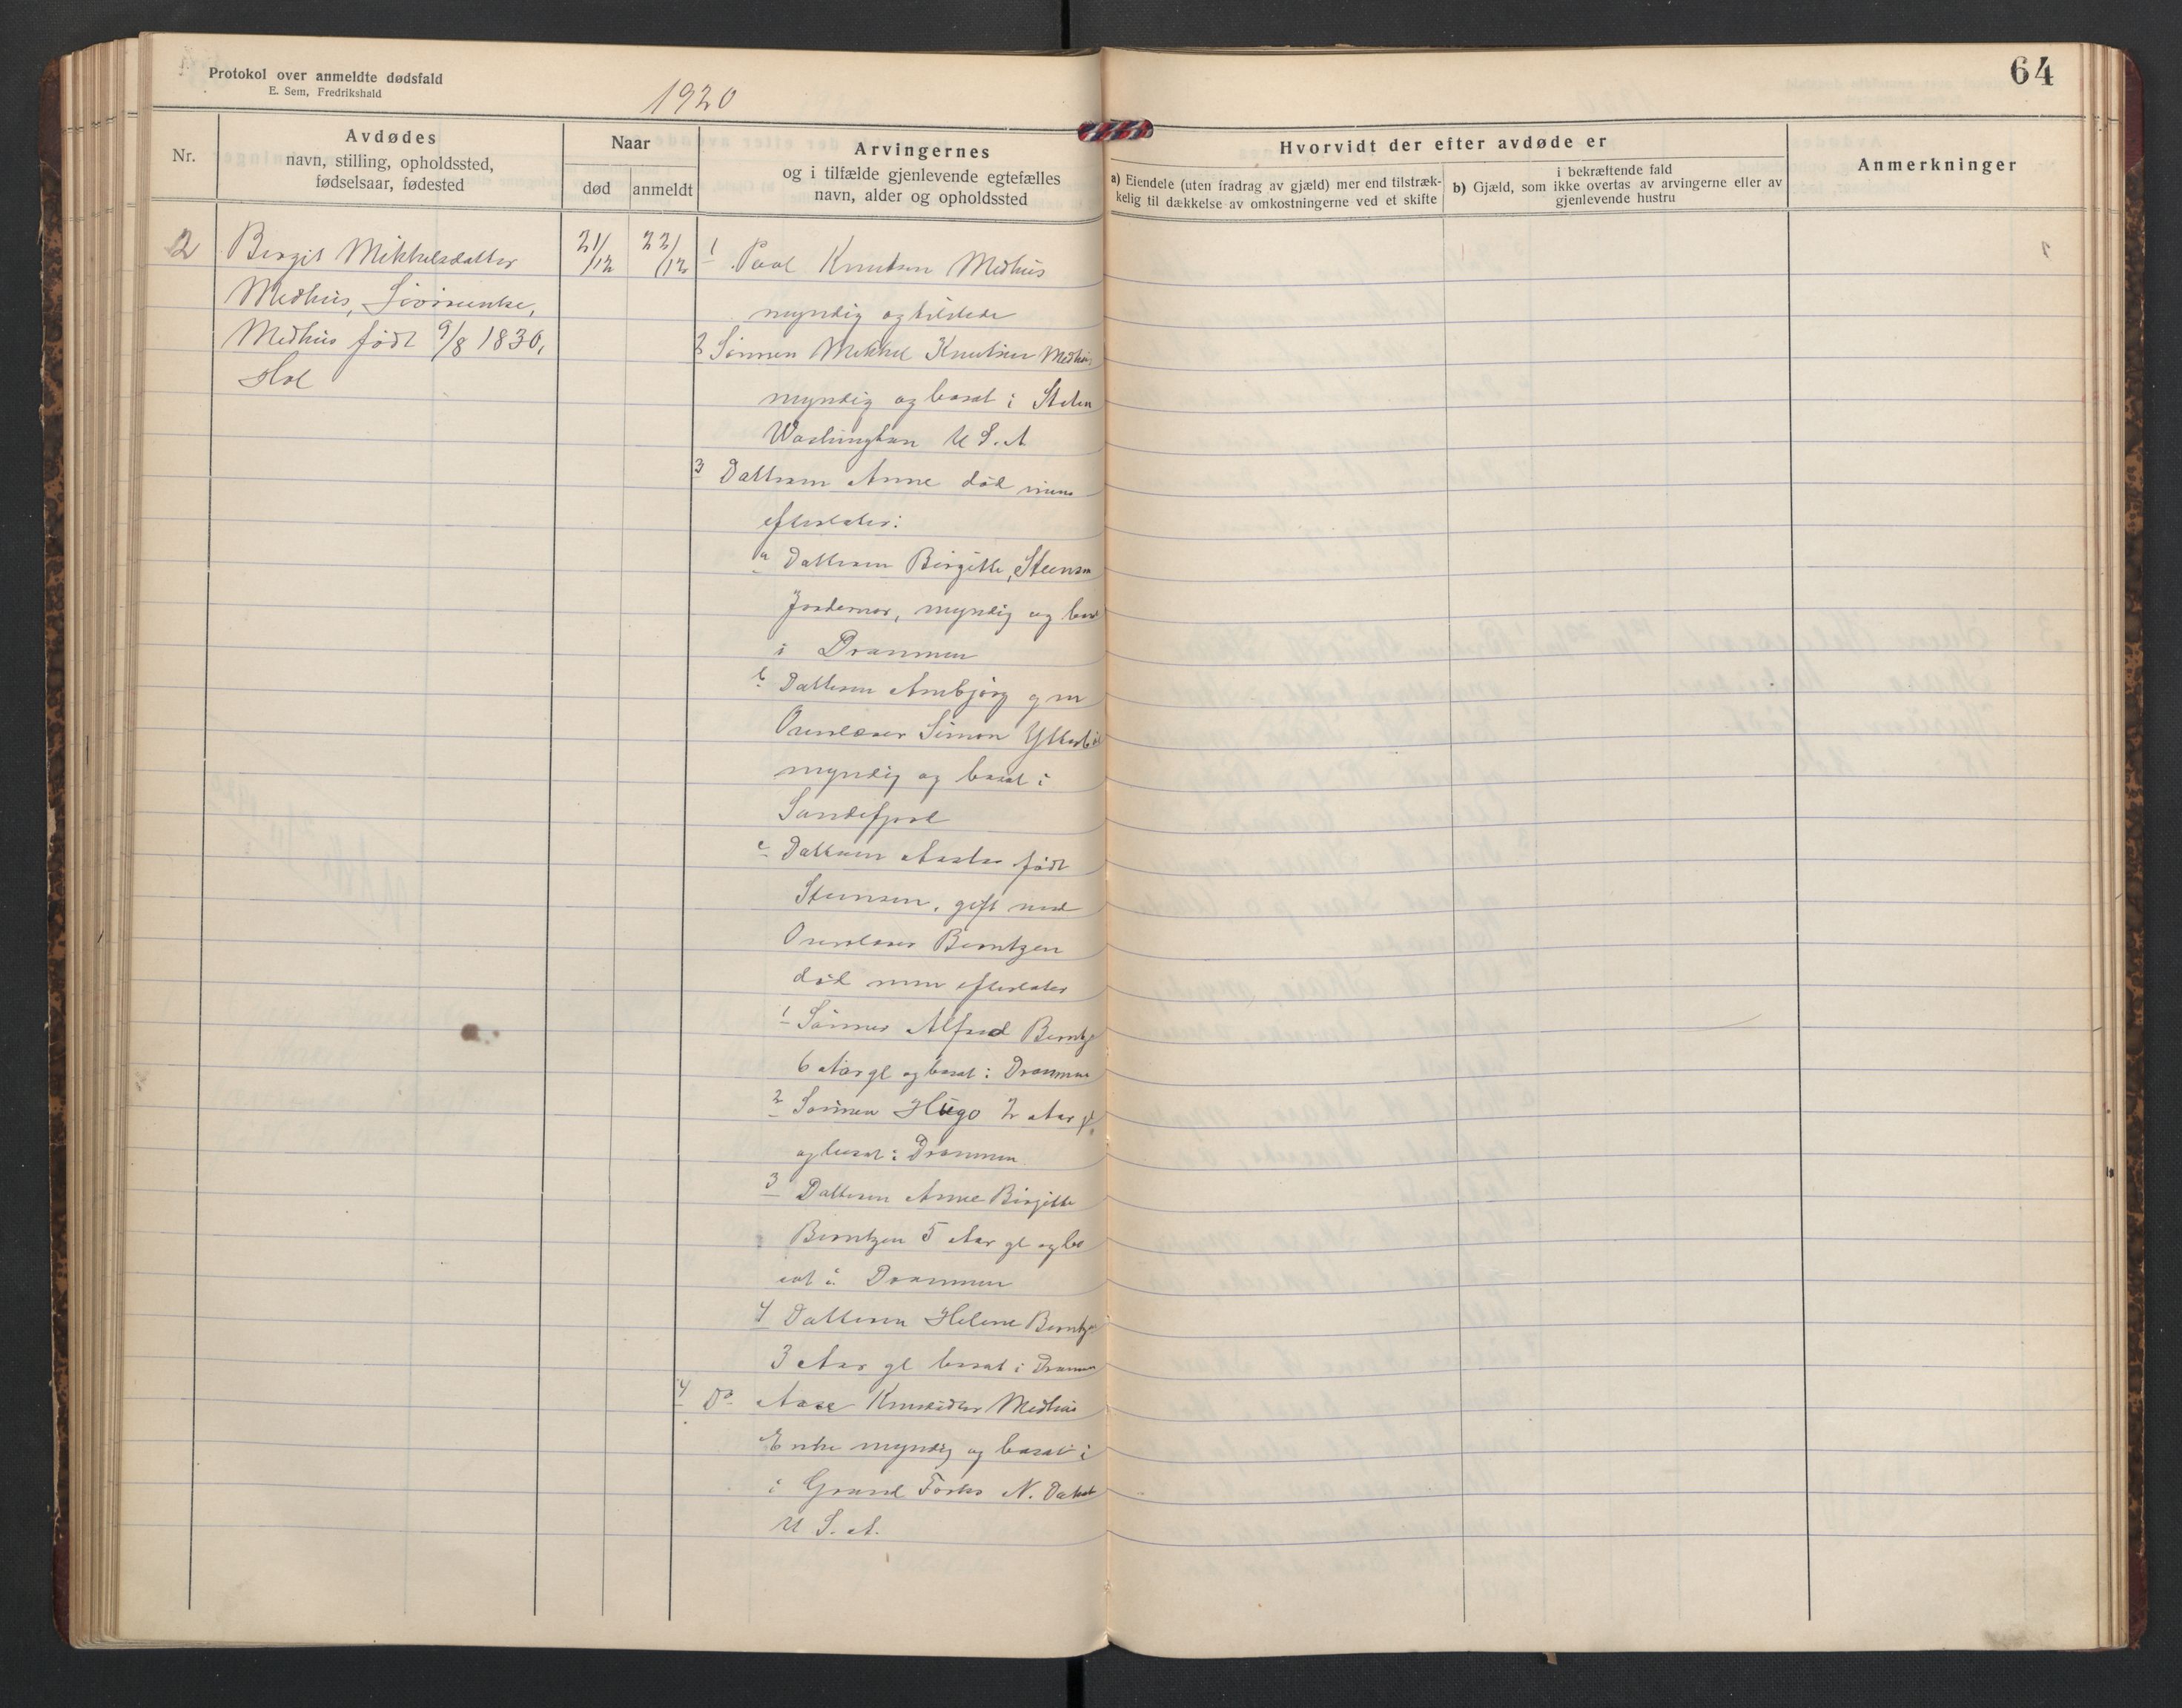 64
Protokol over anmeldte dødsfald
E. Sem, Fredrikshald
1920
Nr.
Avdødes
navn, stilling, opholdssted,
fødselsaar, fødested
Naar
død
anmeldt
Arvingernes
og i tilfælde gjenlevende egtefælles
navn, alder og opholdssted
Hvorvidt der efter avdøde er
a) Eiendele (uten fradrag av gjæld) mer end tilstræk-
kelig til dækkelse av omkostningerne ved et skifte
i bekræftende fald
b) Gjæld, som ikke overtas av arvingerne eller av
gjenlevende hustru
Anmerkninger
2
Birgit Mikkelsdatter
Medhus,
Medhus født 9/8 1830,
Hol
21/12
22/12
1 Paal Knutsen Medhus
myndig og tilstede
2 Sønnen Mikkel Knutsen Medhus
myndig og bosat i Staten
Washington U S. A
3 Datteren Anne død men
efterlater:
a Datteren Birgitte, Steensen
Jordemor, myndig og bosat
i Drammen
b Datteren Ambjørg g m
Overlærer Simon
myndig og bosat i
Sandefjord
c Datteren Aasta født
Steensen, gift med
Overlærer Berntzen
død men efterlater
1 Sønnen Alfred Berntzen
6 Aar gl og bosat i Drammen
2 Sønnen Hugo 2 Aar gl.
og bosat i Drammen
3 Datteren Anne Birgitte
Berntzen 5 Aar gl og bo
sat i Drammen
4 Datteren Helene Berntzen
3 Aar gl bosat i Drammen
4 Do Aase Knutsdtr Medhus
Enke myndig og bosat i
i Grand Forks N. Dakota
U S. A.